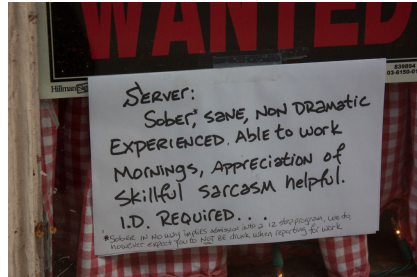 WANTED
Hillman
839894
SERVER:
Sober,* SANE, NON DRAMATIC
EXPERIENCED. Able to work
MORNINGS, Appreciation of
Skillful Sarcasm helpful.
I.D. REQUIRED...
*Sober IN No way implies admission into a 12 step program, we do
however expect you to NOT BE drunk when reporting for work